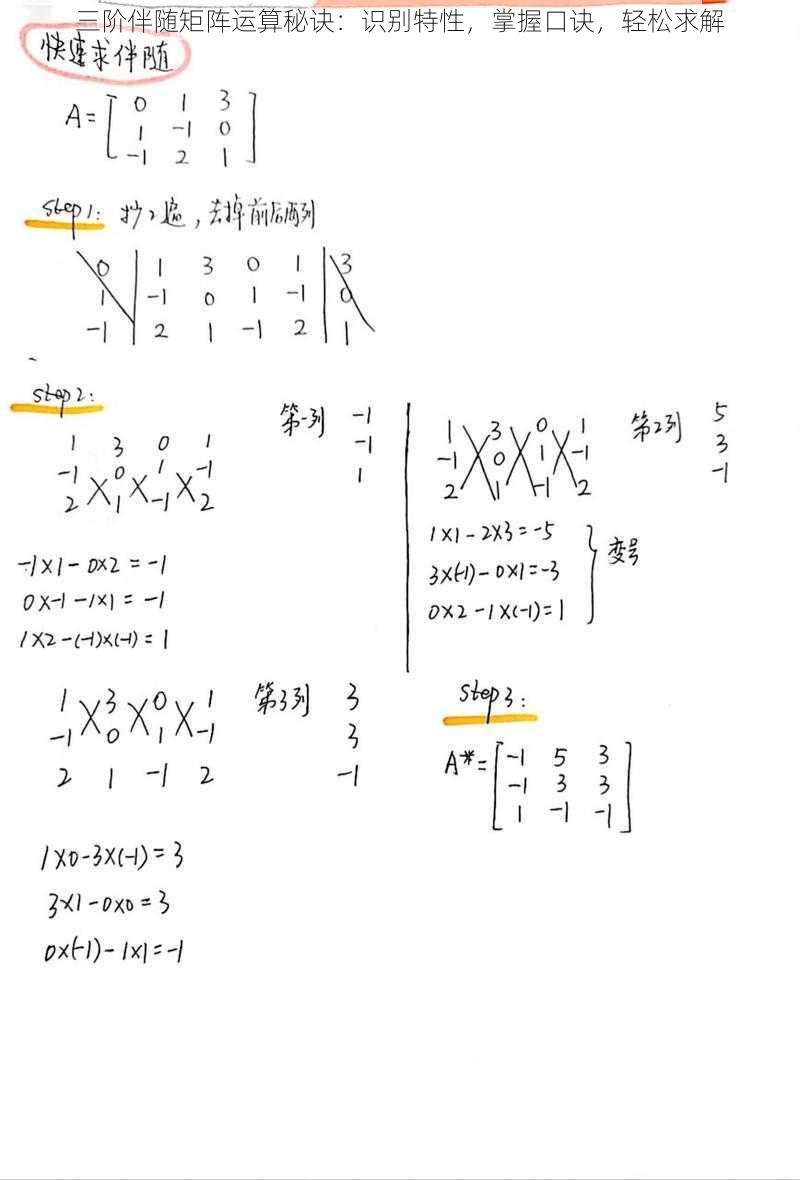 三阶伴随矩阵运算秘诀：识别特性，掌握口诀，轻松求解
快速求伴随
A= [ 0 1 3
1 -1 0
-1 2 1 ]
step1: 抄2遍，去掉前后两列
0 | 1 3 0 1 | 3
1 | -1 0 1 -1 | 0
-1 | 2 1 -1 2 | 1
step2:
1 3 0 1
-1 0 1 -1
2 1 -1 2
第一列 -1
-1
1
-1×1-0×2=-1
0×-1-1×1=-1
1×2-(-1)×(-1)=1
1 3 0 1
-1 0 1 -1
2 1 -1 2
第2列 5
3
-1
1×1-2×3=-5
3×(-1)-0×1=-3
0×2-1×(-1)=1
} 变号
1 3 0 1
-1 0 1 -1
2 1 -1 2
第3列 3
3
-1
1×0-3×(-1)=3
3×1-0×0=3
0×(-1)-1×1=-1
step3:
A*= [ -1 5 3
-1 3 3
1 -1 -1 ]